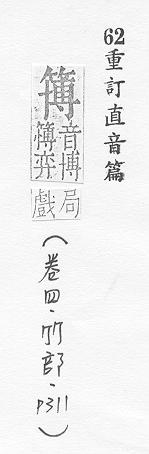 62重訂直音篇
簙
音博
簙弈
局
戲
(卷四·竹部·P311)